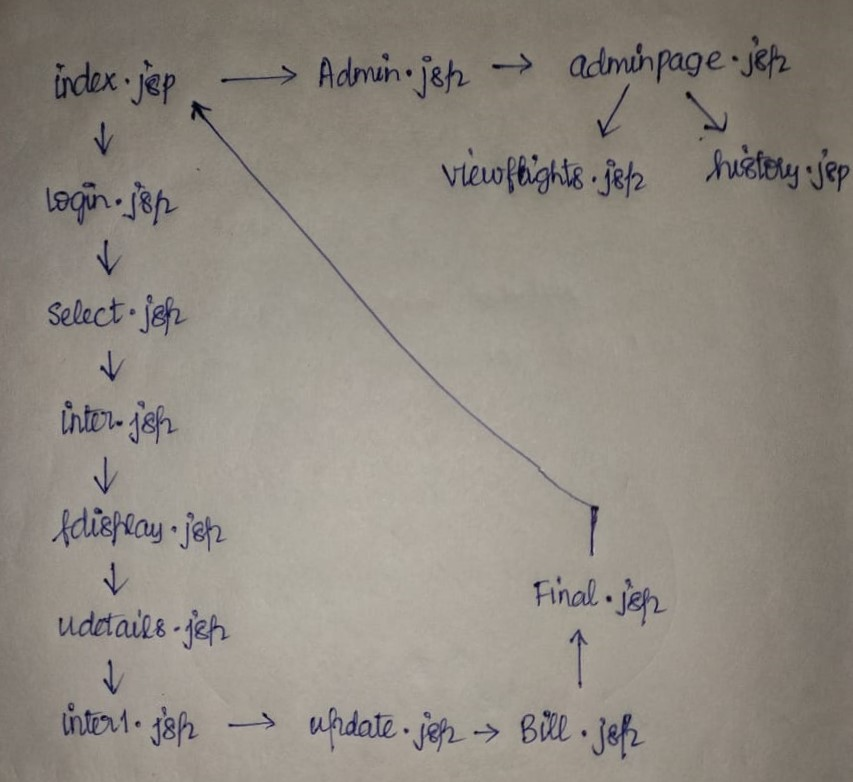 index.jsp → Admin.jsp → adminpage.jsp
viewflights.jsp history.jsp
login.jsp
select.jsp
inter.jsp
fdisplay.jsp
udetails.jsp
Final.jsp
inter1.jsp → update.jsp → Bill.jsp